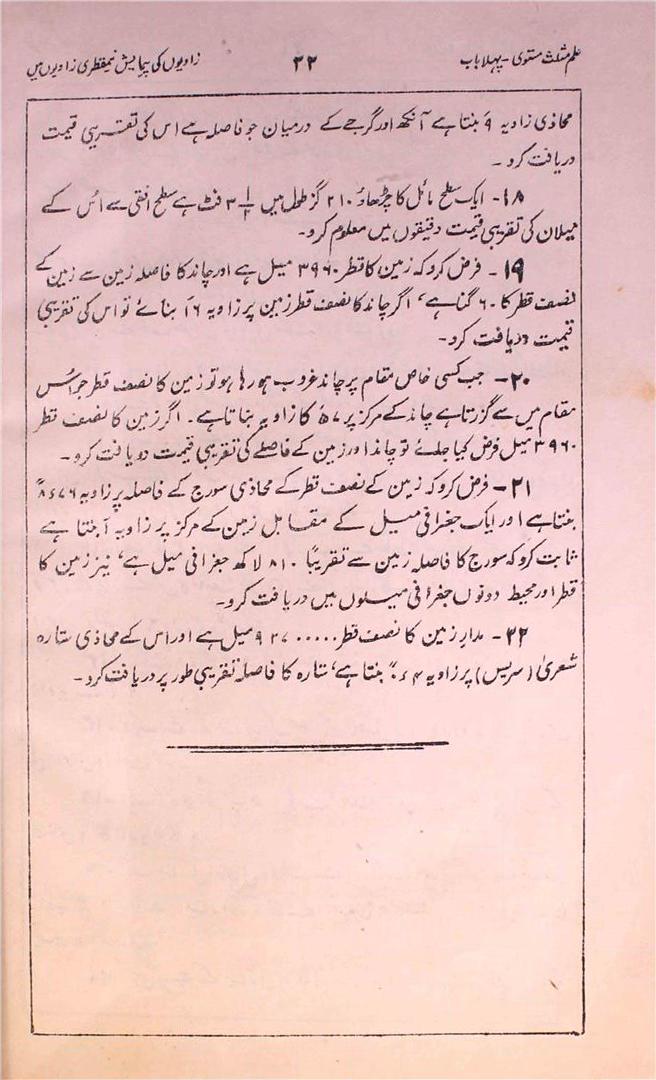 علم مثلث مستوی - پہلا باب ۳۲ زاویوں کی پیمایش نیمقطری زاویوں میں
محاذی زاویہ ۹َ بنتا ہے آنکھ اور گرجے کے درمیان جو فاصلہ ہے اس کی تقریبی قیمت
دریافت کرو۔
۱۸- ایک سطح مائل کا چڑھاؤ ۲۱۰ گز طول میں ۳ ۱/۲ فٹ ہے سطح افقی سے اُس کے
میلان کی تقریبی قیمت دقیقوں میں معلوم کرو۔
۱۹- فرض کرو کہ زمین کا قطر ۳۹۶۰ میل ہے اور چاند کا فاصلہ زمین سے زمین کے
نصف قطر کا ۶۰ گنا ہے، اگر چاند کا نصف قطر زمین پر زاویہ ۱۶َ بنائے تو اس کی تقریبی
قیمت دریافت کرو۔
۲۰- جب کسی خاص مقام پر چاند غروب ہو رہا ہو تو زمین کا نصف قطر جو اُس
مقام میں سے گزرتا ہے چاند کے مرکز پر ۵۷َ کا زاویہ بناتا ہے۔ اگر زمین کا نصف قطر
۳۹۶۰ میل فرض کیا جائے تو چاند اور زمین کے فاصلے کی تقریبی قیمت دریافت کرو۔
۲۱- فرض کرو کہ زمین کے نصف قطر کے محاذی سورج کے فاصلہ پر زاویہ ۸٫۷۶ً
بنتا ہے اور ایک جغرافی میل کے مقابل زمین کے مرکز پر زاویہ ۱َ بنتا ہے
ثابت کرو کہ سورج کا فاصلہ زمین سے تقریباً ۸۱۰ لاکھ جغرافی میل ہے، نیز زمین کا
قطر اور محیط دونوں جغرافی میلوں میں دریافت کرو۔
۲۲- مدارِ زمین کا نصف قطر ۹۲۷۰۰۰۰۰ میل ہے اور اس کے محاذی ستارہ
شعریٰ (سریس) پر زاویہ ۰٫۴ً بنتا ہے، ستارہ کا فاصلہ تقریبی طور پر دریافت کرو۔